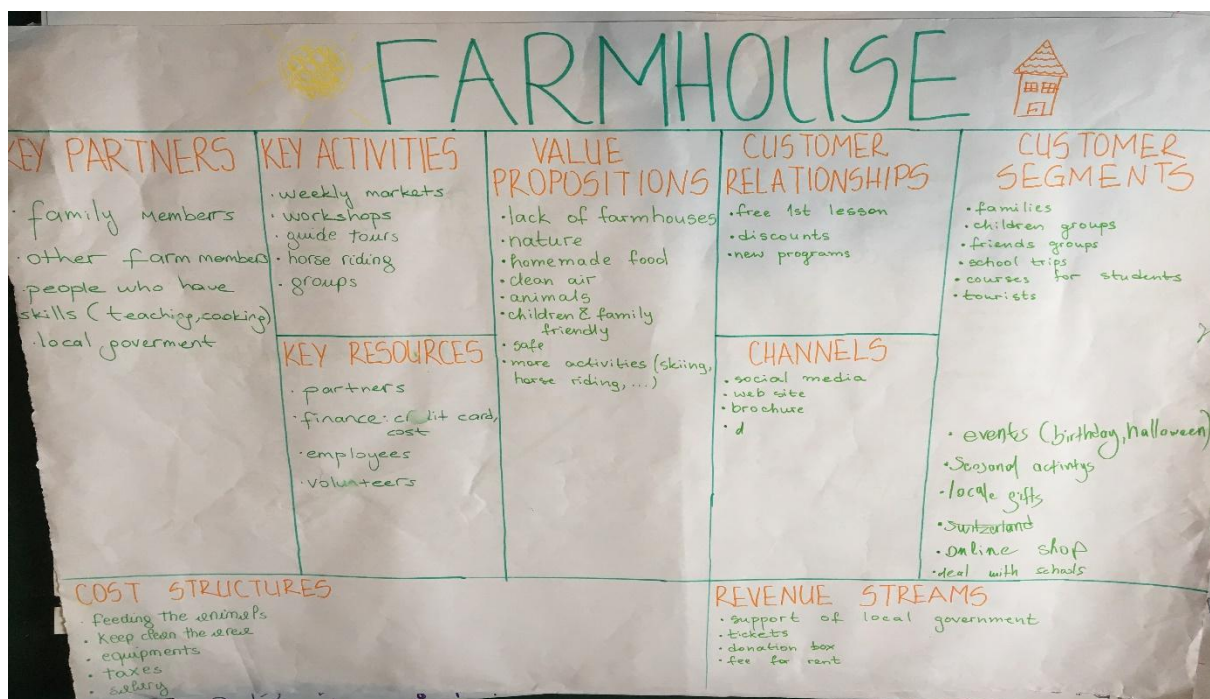 FARMHOUSE
KEY PARTNERS
· family members
· other farm members
· people who have
skills (teaching, cooking)
· local goverment
KEY ACTIVITIES
· weekly markets
· workshops
· guide tours
· horse riding
· groups
KEY RESOURCES
· partners
· finance: credit card,
cost
· employees
· volunteers
VALUE
PROPOSITIONS
· lack of farmhouses
· nature
· homemade food
· clean air
· animals
· children & family
friendly
· safe
· more activities (skiing,
horse riding, ...)
CUSTOMER
RELATIONSHIPS
· free 1st lesson
· discounts
· new programs
CHANNELS
· social media
· web site
· brochure
· d
CUSTOMER
SEGMENTS
· families
· children groups
· friends groups
· school trips
· courses for students
· tourists
· events (birthday, halloween)
· Seosonal activtys
· locale gifts
· Switzerland
· online shop
· deal with schools
COST STRUCTURES
· feeding the animals
· Keep clean the area
· equipments
· taxes
· sallery
REVENUE STREAMS
· support of local government
· tickets
· donation box
· fee for rent